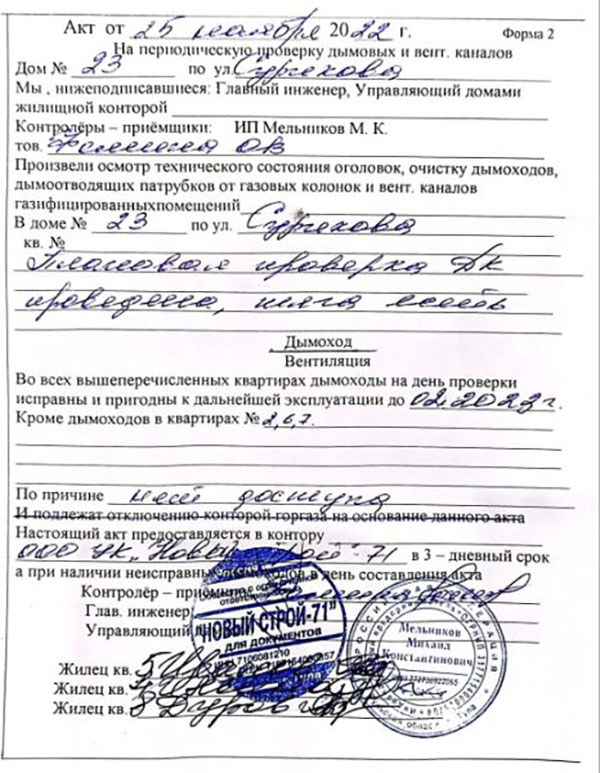 Акт от 25 ноября 2022 г. Форма 2
На периодическую проверку дымовых и вент. каналов
Дом № 23 по ул. Сурикова
Мы , нижеподписавшиеся: Главный инженер, Управляющий домами
жилищной конторой
Контролёры – приёмщики: ИП Мельников М. К.
тов. Фомина ОВ
Произвели осмотр технического состояния оголовок, очистку дымоходов,
дымоотводящих патрубков от газовых колонок и вент. каналов
газифицированныхпомещений
В доме № 23 по ул. Сурикова
кв. №
Плановая проверка ДК
проведена, тяга есть
Дымоход
Вентиляция
Во всех вышеперечисленных квартирах дымоходы на день проверки
исправны и пригодны к дальнейшей эксплуатации до 02.2023 г.
Кроме дымоходов в квартирах № 2,6,7.
По причине нет доступа
И подлежат отключению конторой горгаза на основание данного акта
Настоящий акт предоставляется в контору
ООО УК "Новый строй-71 в 3 – дневный срок
а при наличии неисправных дымоходов в день составления акта
Контролёр – приёмщик
Глав. инженер
Управляющий
"НОВЫЙ СТРОЙ-71"
ДЛЯ ДОКУМЕНТОВ
ИНН 7106081210
Мельников
Михаил
Константинович
Жилец кв. 5
Жилец кв.
Жилец кв. 8